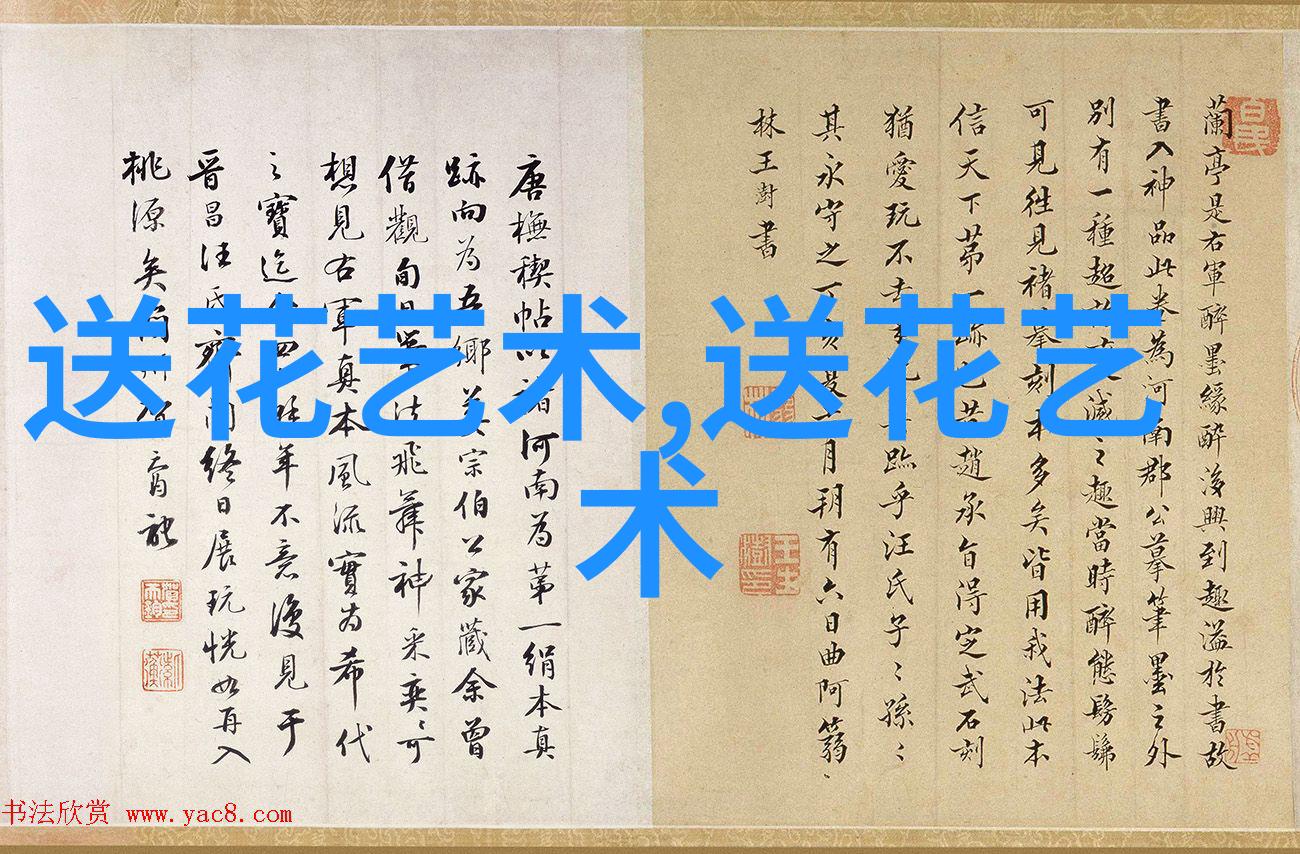 蘭亭是右軍醉墨緣醉後興到趣溢於書故
書入神品此卷為河南郡公摹筆墨之外
別有一種超滅之趣當時醉態髣髴
可見往見褚摹刻本多矣皆用我法此本
信天下第一跡也昔趙承旨得定武石刻
猶愛玩不去手乎汪氏子〻孫〻
其永守之丁亥月朔有六日曲阿篛
林王澍書
唐橅稧帖以褚河南為第一絹本真
跡向為吾鄉宗伯公家藏余曾
借觀旬日筆法飛舞神采奕〻可
想見右軍真本風流實為希代
之寶迄今四年不意復見于
晉昌汪氏齋終日展玩恍如再入
桃源矣
送花艺术,送花艺
术
书法欣赏 www.yac8.com